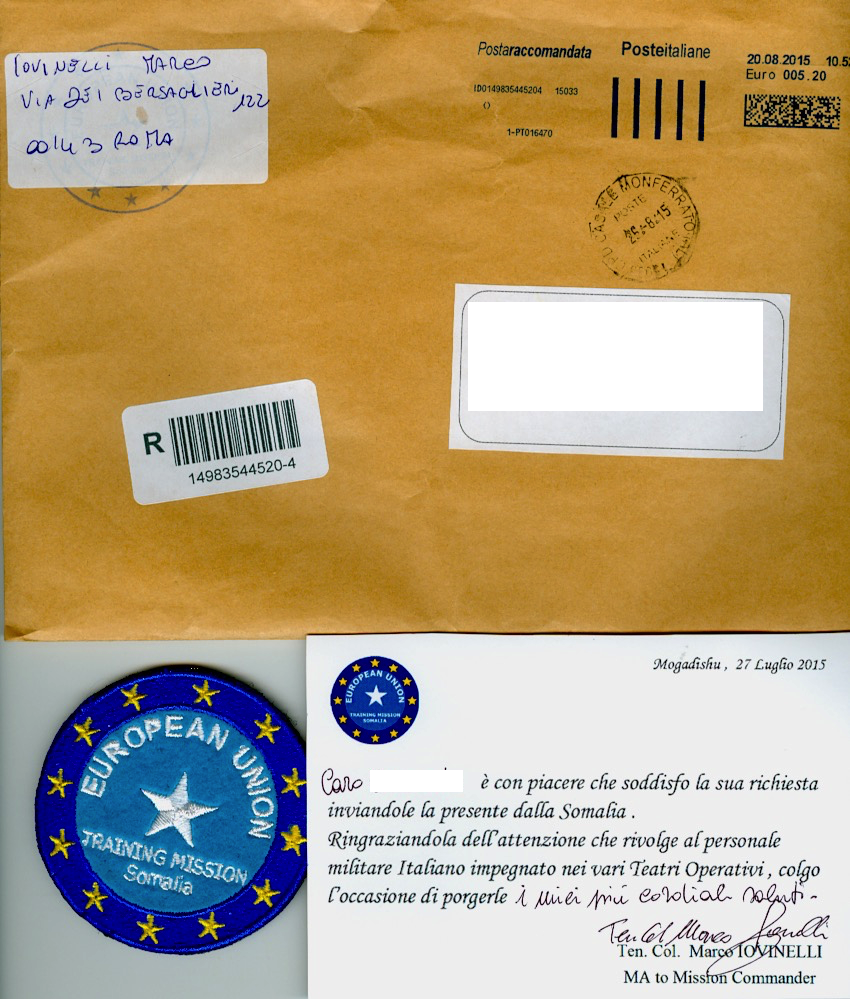 IOVINELLI MARCO
VIA DEI BERSAGLIERI 122
00143 ROMA
Postaraccomandata
Posteitaliane
20.08.2015 10.52
Euro 005.20
ID0149835445204 15033
1-PT016470
CASALE MONFERRATO (AL)
POSTE
25-8-15
ITALIANE
R
14983544520-4
EUROPEAN UNION
TRAINING MISSION
Somalia
EUROPEAN UNION
TRAINING MISSION
SOMALIA
Mogadishu , 27 Luglio 2015
Caro è con piacere che soddisfo la sua richiesta
inviandole la presente dalla Somalia .
Ringraziandola dell'attenzione che rivolge al personale
militare Italiano impegnato nei vari Teatri Operativi , colgo
l'occasione di porgerle i miei più cordiali saluti.
Ten Col Marco Iovinelli
Ten. Col. Marco IOVINELLI
MA to Mission Commander